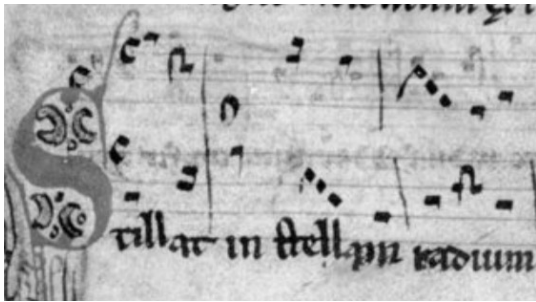 Stillat in stellam radium